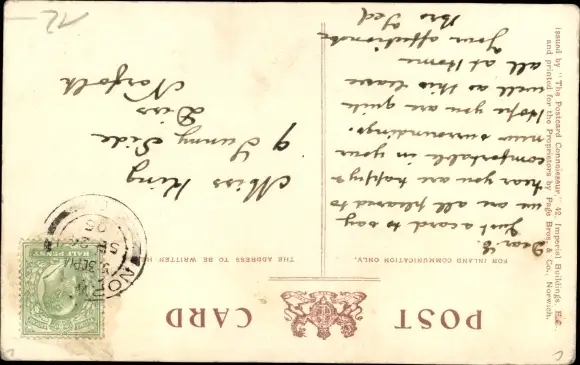 POST CARD
FOR INLAND COMMUNICATION ONLY.
THE ADDRESS TO BE WRITTEN HE
Dear E.
Just a card to say
we are all pleased to
hear you are happy &
comfortable in your
new surroundings.
Hope you are quite
well as this leaves
all at Home
Your affectionate
Bro Ted
Miss King
9 Sunny Side
Diss
Norfolk
HALF PENNY
NORW
SP 24
05
Issued by "The Postcard Connoisseur," 42, Imperial Buildings, E.C.,
and printed for the Proprietors by Page Bros. & Co., Norwich.
12